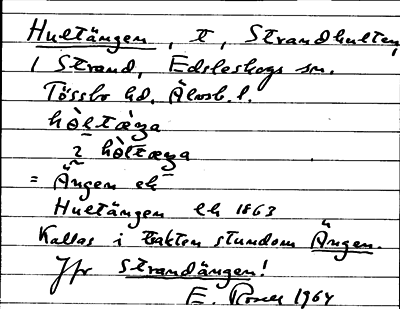 Hultängen, t, Strandhulten,
1 Strand, Edsleskogs sn.
Tössbo hd. Älvsb. l.
hòltæŋa
2 hòltæŋa
= Ängen ek
Hultängen lk 1863
Kallas i trakten stundom Ängen.
Jfr Strandängen!
E. Rosell 1964